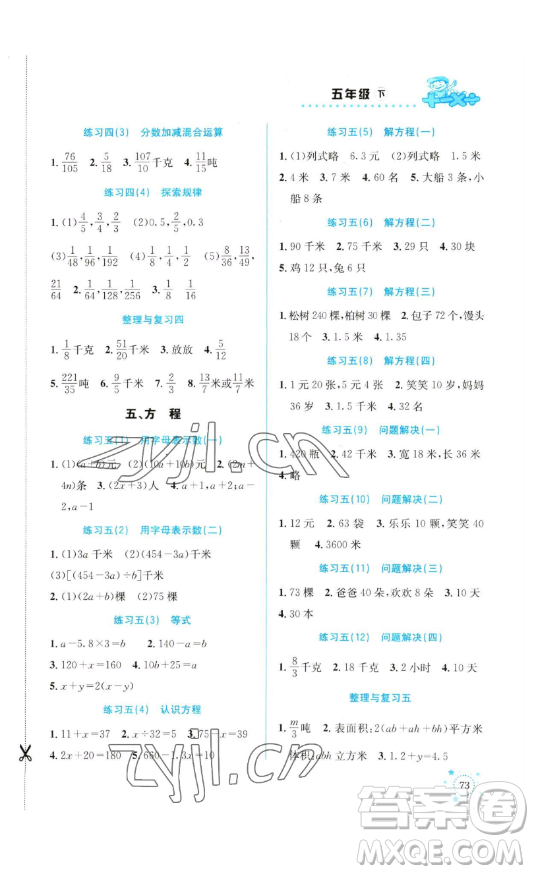 五年级 下
练习四(3) 分数加减混合运算
1. 76/105 2. 5/18 3. 107/10千克 4. 11/15吨
练习四(4) 探索规律
1. (1) 4/5, 3/4, 2/3 (2)0.5, 2/5, 0.3
(3) 1/48, 1/96, 1/192 (4) 1/6, 1/18 (5) 8/36, 13/49,
21/64 2. 1/64 1/128 3. 1/8 1/16
整理与复习四
1. 1/8千克 2. 3. 放放 4.
5. 221/35吨 6. 千克 7. 8. 13/7米
五、方 程
练习五(1) 用字母表示数(一)
1. (1)(a+b)元 (2)(10a+10b)元 2. (2m+
4n)条 3. (2x+3)人 4. a+1,a+2;a-2,
a-1
练习五(2) 用字母表示数(二)
1. (1)3a千米 (2)(454-3a)千米
(3)[(454-3a)÷b]千米
2. (1)(2a+b)棵 (2)90棵
练习五(3) 等式
1. a-5.8×3=b 2. 140-a=b
3. 120+x=160 4. 2x+10=90
5. x+2x=90
练习五(4) 认识方程
1. 11+x=37 2. x÷32=5 3. 75
4. 2x+20=180 5. 660-1.3x=10
练习五(5) 解方程(一)
1. (1)列式略 6.3元 (2)列式略 1.5米
2. 4米 3. 0.9元 4. 30人 5. 大船3条,小
船8条
练习五(6) 解方程(二)
1. 90千米 2. 75千米 3. 25千米 4. 30块
5. 鸡12只,兔6只
练习五(7) 解方程(三)
1. 松树240棵,柏树30棵 2. 包子72个,馒头
18个 3. 1.5米 4. 1.35
练习五(8) 解方程(四)
1. 1元20张,5元4张 2. 笑笑10岁,妈妈
36岁 3. 1.5千米 4. 32名
练习五(9) 问题解决(一)
1. 420瓶 2. 42棵 3. 宽38米,长46米
4. 略
练习五(10) 问题解决(二)
1. 12元 2. 63袋 3. 乐乐10颗,笑笑
30颗 4. 3600米
练习五(11) 问题解决(三)
1. 73棵 2. 爸爸40岁,欢欢8岁 3. 10天
4. 30本
练习五(12) 问题解决(四)
1. 8/3千克 2. 3千克 3. 2小时 4. 10天
整理与复习五
1. m/3吨 2. 表面积:2(ab+ah+bh)平方米
体积:abh立方米 3. 1.2+y=4.5
73
zyjl.cn
zyjl.cn
答案圈
MXQE.COM